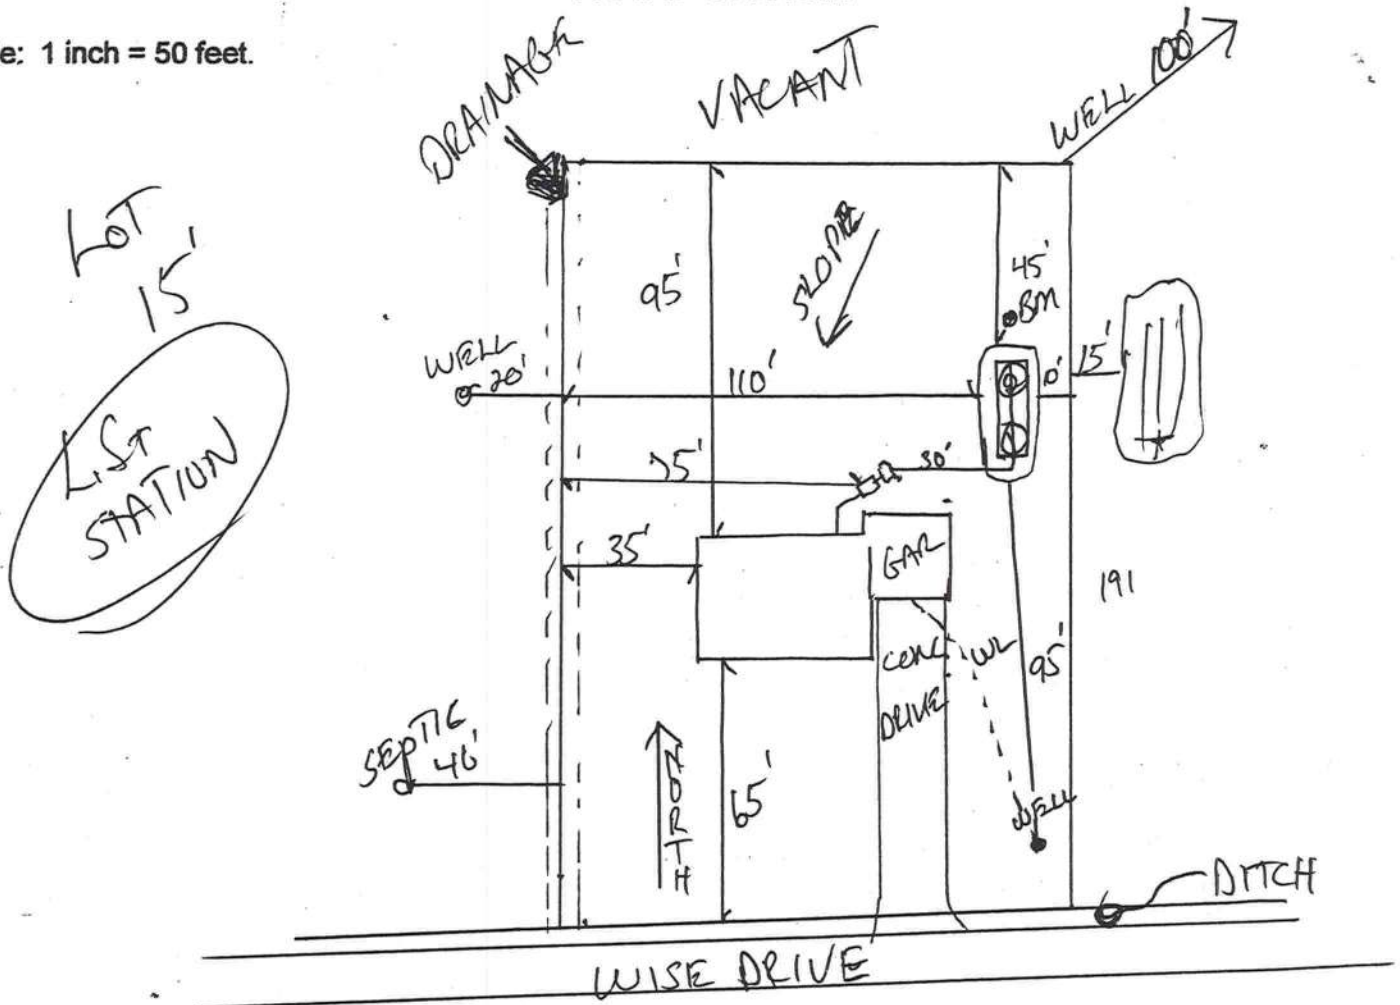 e: 1 inch = 50 feet.
DRAINAGE
VACANT
WELL 100'
LOT
15'
LIST
STATION
95'
SLOPE
45'
BM
WELL
20'
110'
15'
30'
35'
GAR
191
CONC
DRIVE
WL
95'
SEPTIC
40'
NORTH
65'
WELL
DITCH
WISE DRIVE